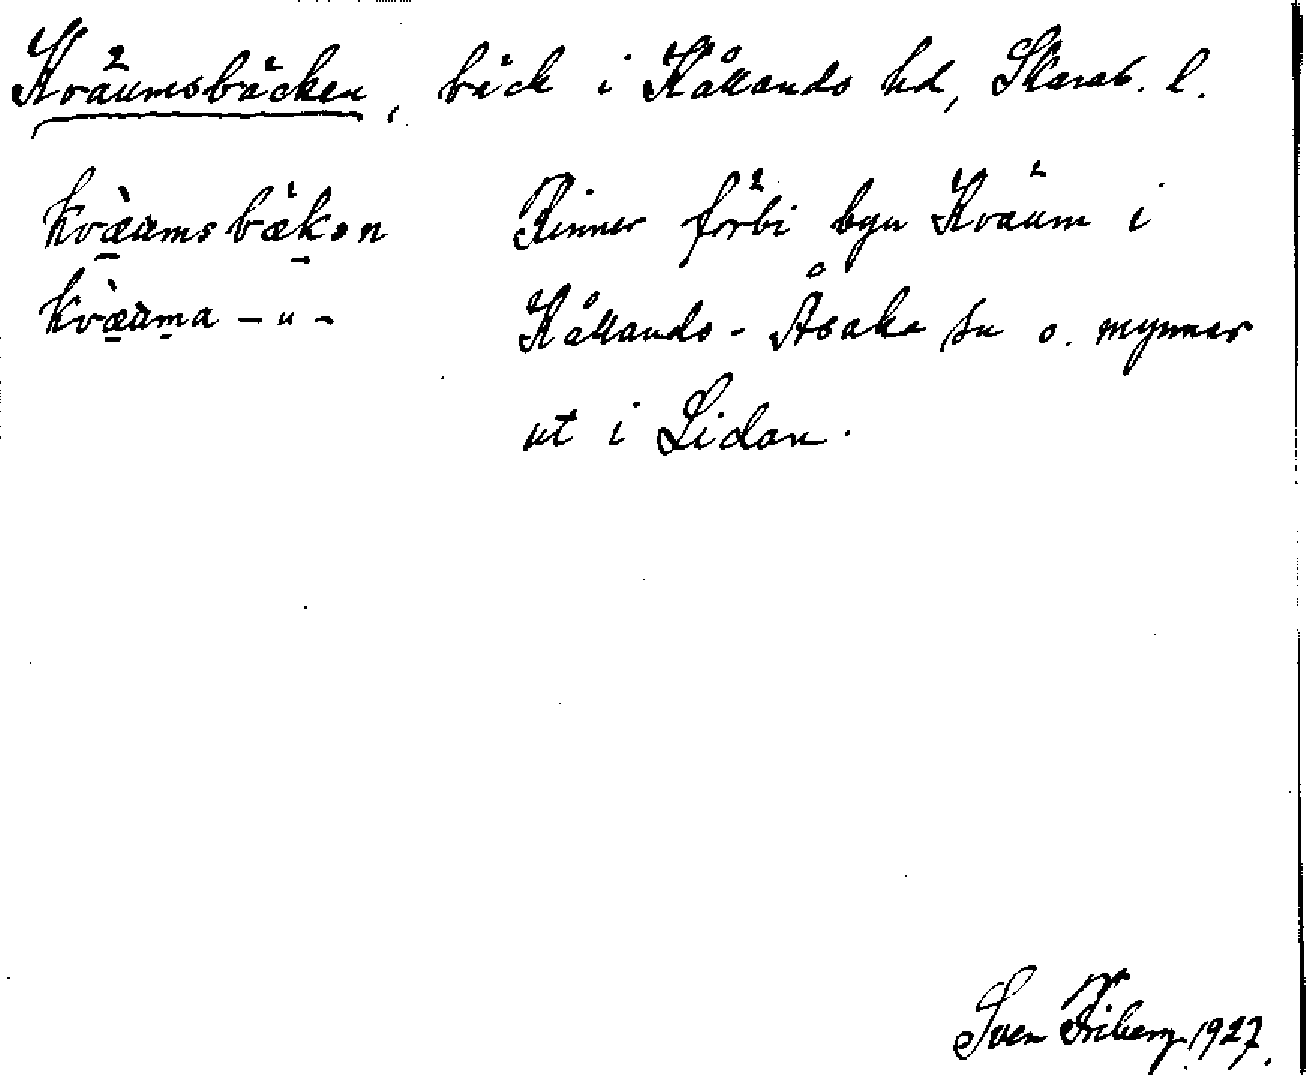 Kväumsbäcken, bäck i Kållands hd, Skarab. l.
kvæ̀ums bækən Rinner förbi byn Kväum i
kvæ̀uma – " – Kållands-Åsaka sn o. mynnar
ut i Lidan.
Sven Friberg 1927.